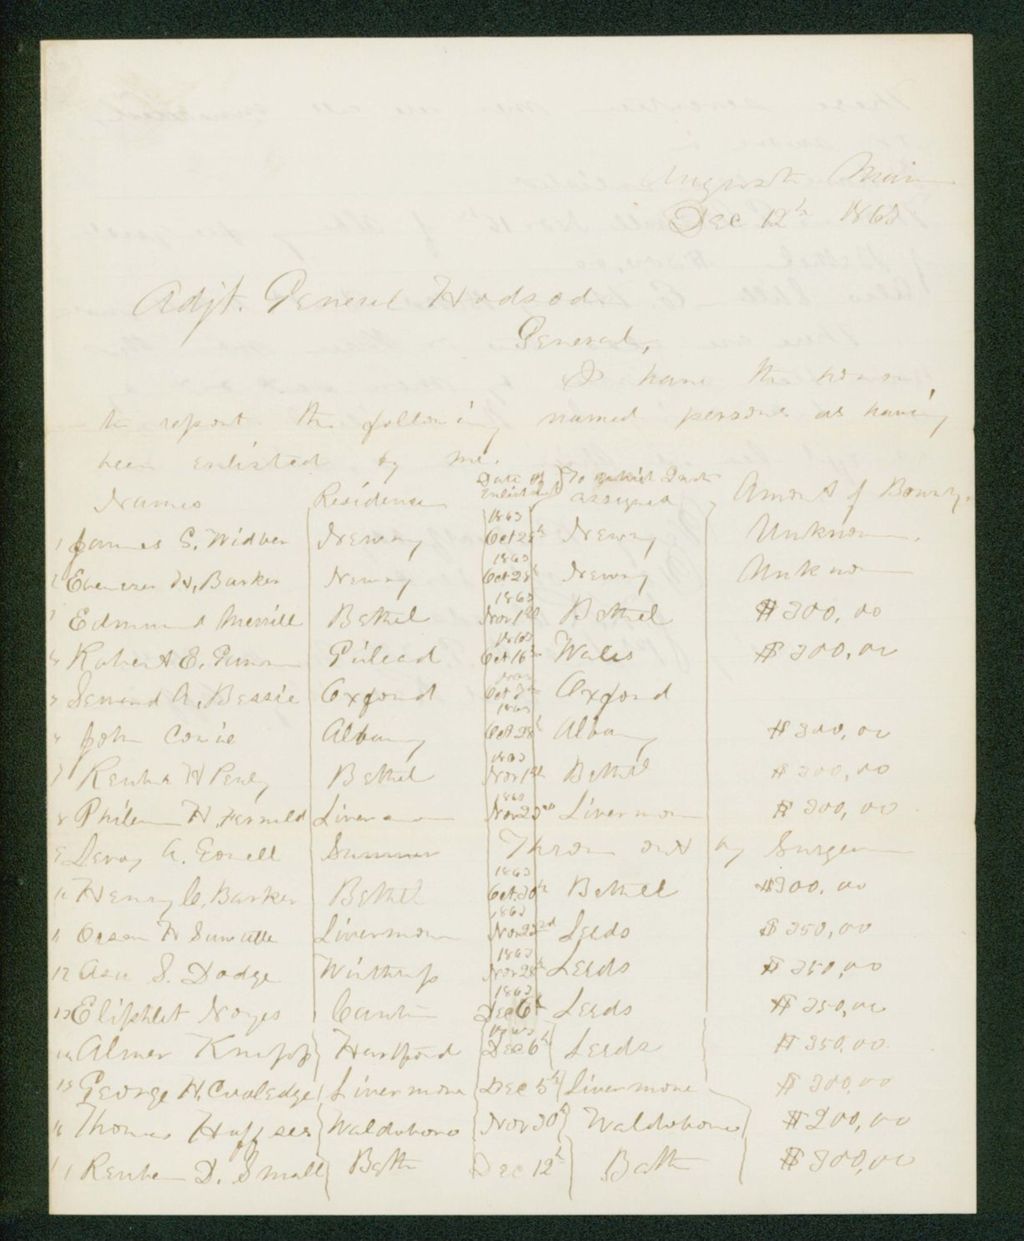 Augusta Maine
Dec 12th 1863
Adjt. General Hodsdon
General,
I have the honor
to report the following named persons as having
been enlisted by me.
Names Residence Date of Enlistment To which Quota assigned Amont of Bounty.
1 James S. Widber Newry 1863 Oct 28th Newry Unknown.
2 Ebenezer H. Barker Newry 1863 Oct 28th Newry Unknown
3 Edmund Merrill Bethel 1863 Nov 1st Bethel $300,00
4 Robert E. Gilead 1863 Oct 16th Wales $300,00
5 A. Bessie Oxford Oct Oxford
6 John Albany 1863 Oct 28th Albany $300,00
7 Reuben H Bethel 1863 Nov 1st Bethel $300,00
8 H. Fernald Livermore 1863 Livermore $300,00
9 Leroy A. Sumner Thrown out by Surgeon
10 Henry C. Barker Bethel 1863 Oct 30th Bethel $300,00
11 H Livermore 1863 Nov Leeds $350,00
12 Asa S. Dodge Winthrop 1863 Nov 28th Leeds $350,00
13 Eliphlet Noyes Canton 1863 Dec 6th Leeds $350,00
14 Almer Knapp Hartford Dec 6th Leeds $350,00
15 George H. Cooledge Livermore Dec 5th Livermore $300,00
16 Thomas Huffses Waldoboro Nov 30th Waldoboro $200,00
17 Reuben D. Small Bath Dec 12th Bath $300,00